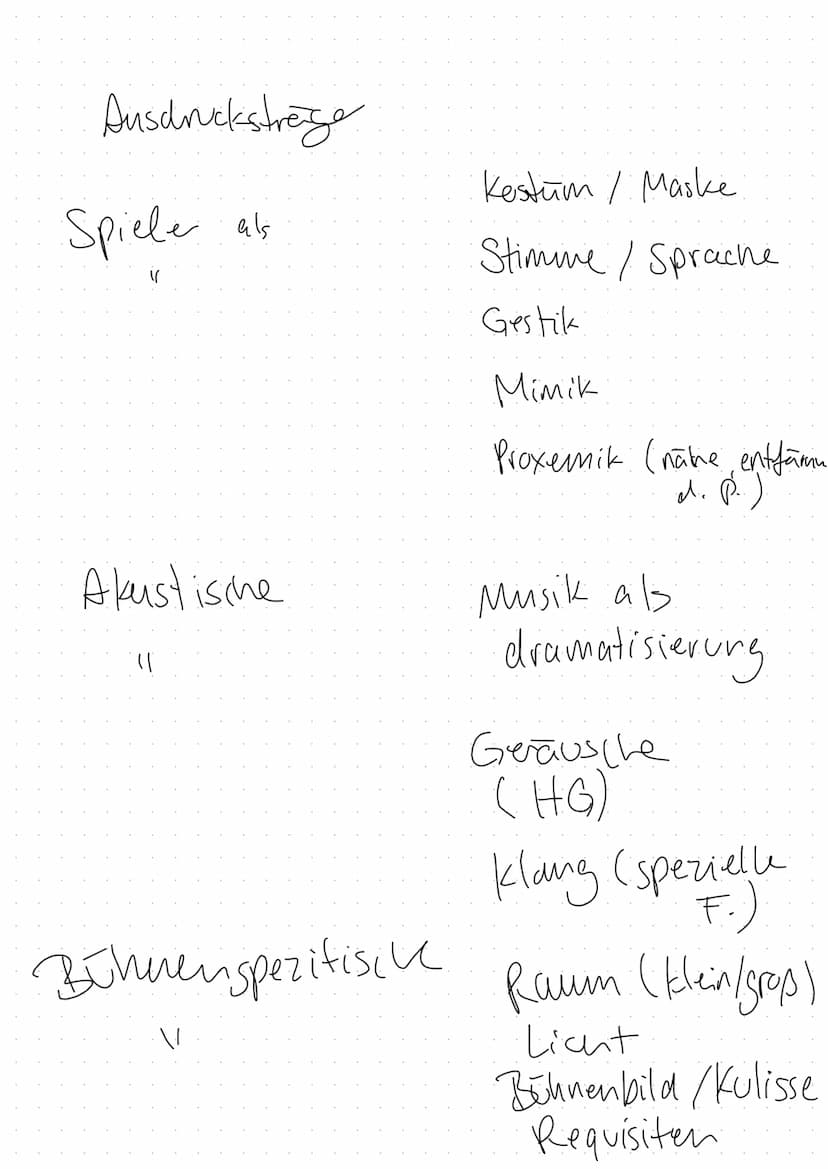 Ausdrucksträge
Spieler als
"
Kostüm / Maske
Stimme / Sprache
Gestik
Mimik
Proxemik (nähe, entfärnu
d. P.)
Akustische
"
Musik als
dramatisierung
Geräusche
(HG)
Klang (spezielle
F.)
Bühnenspezifische
"
Raum (klein/groß)
Licht
Bühnenbild / Kulisse
Requisiten